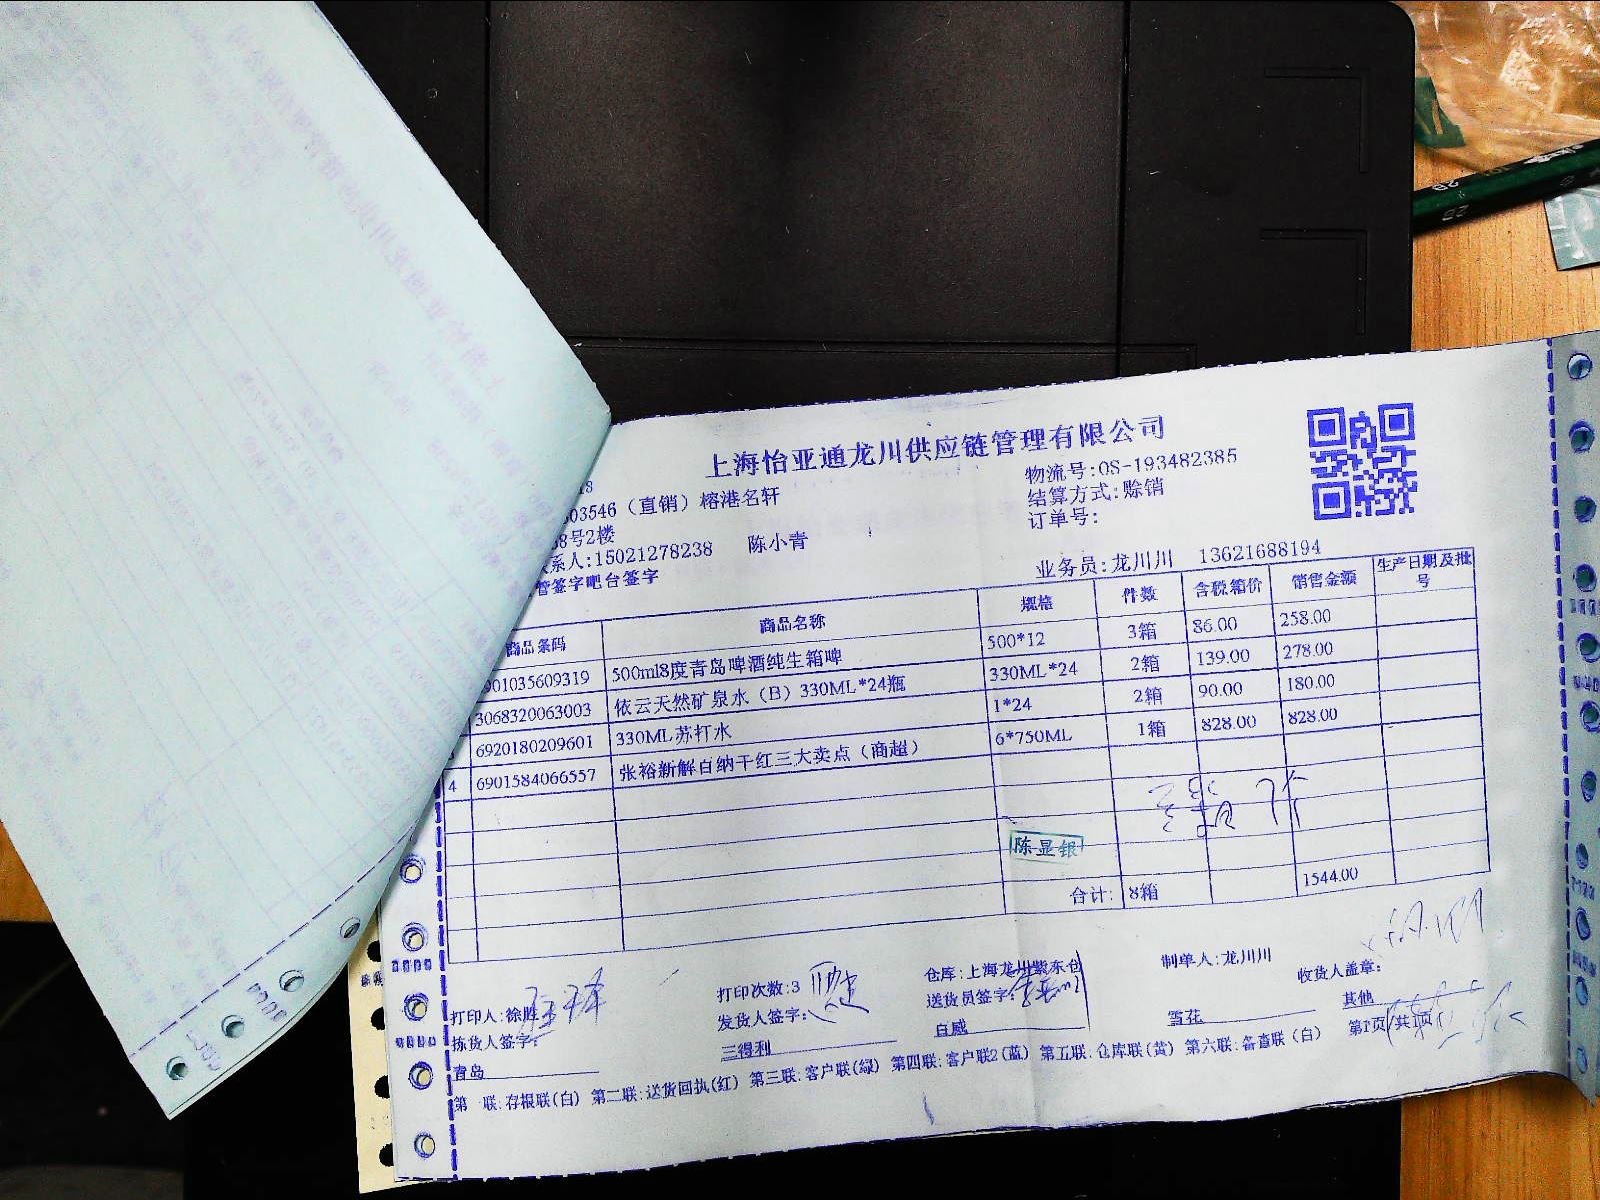 上海怡亚通龙川供应链管理有限公司
物流号:OS-193482385
03546（直销）榕港名轩
结算方式:赊销
38号2楼
订单号:
系人:15021278238 陈小青
业务员:龙川川 13621688194
管签字吧台签字
商品条码 商品名称 规格 件数 含税箱价 销售金额 生产日期及批号
901035609319 500ml8度青岛啤酒纯生箱啤 500*12 3箱 86.00 258.00
3068320063003 依云天然矿泉水（B）330ML*24瓶 330ML*24 2箱 139.00 278.00
6920180209601 330ML苏打水 1*24 2箱 90.00 180.00
4 6901584066557 张裕新解百纳干红三大卖点（商超） 6*750ML 1箱 828.00 828.00
陈显银
合计: 8箱 1544.00
打印人:徐胜 打印次数:3 仓库:上海龙川紫东仓 制单人:龙川川 收货人盖章:
拣货人签字: 发货人签字: 送货员签字:
青岛 三得利 百威 雪花 其他
第一联:存根联(白) 第二联:送货回执(红) 第三联:客户联(绿) 第四联:客户联2(蓝) 第五联:仓库联(黄) 第六联:备查联（白） 第1页/共1页